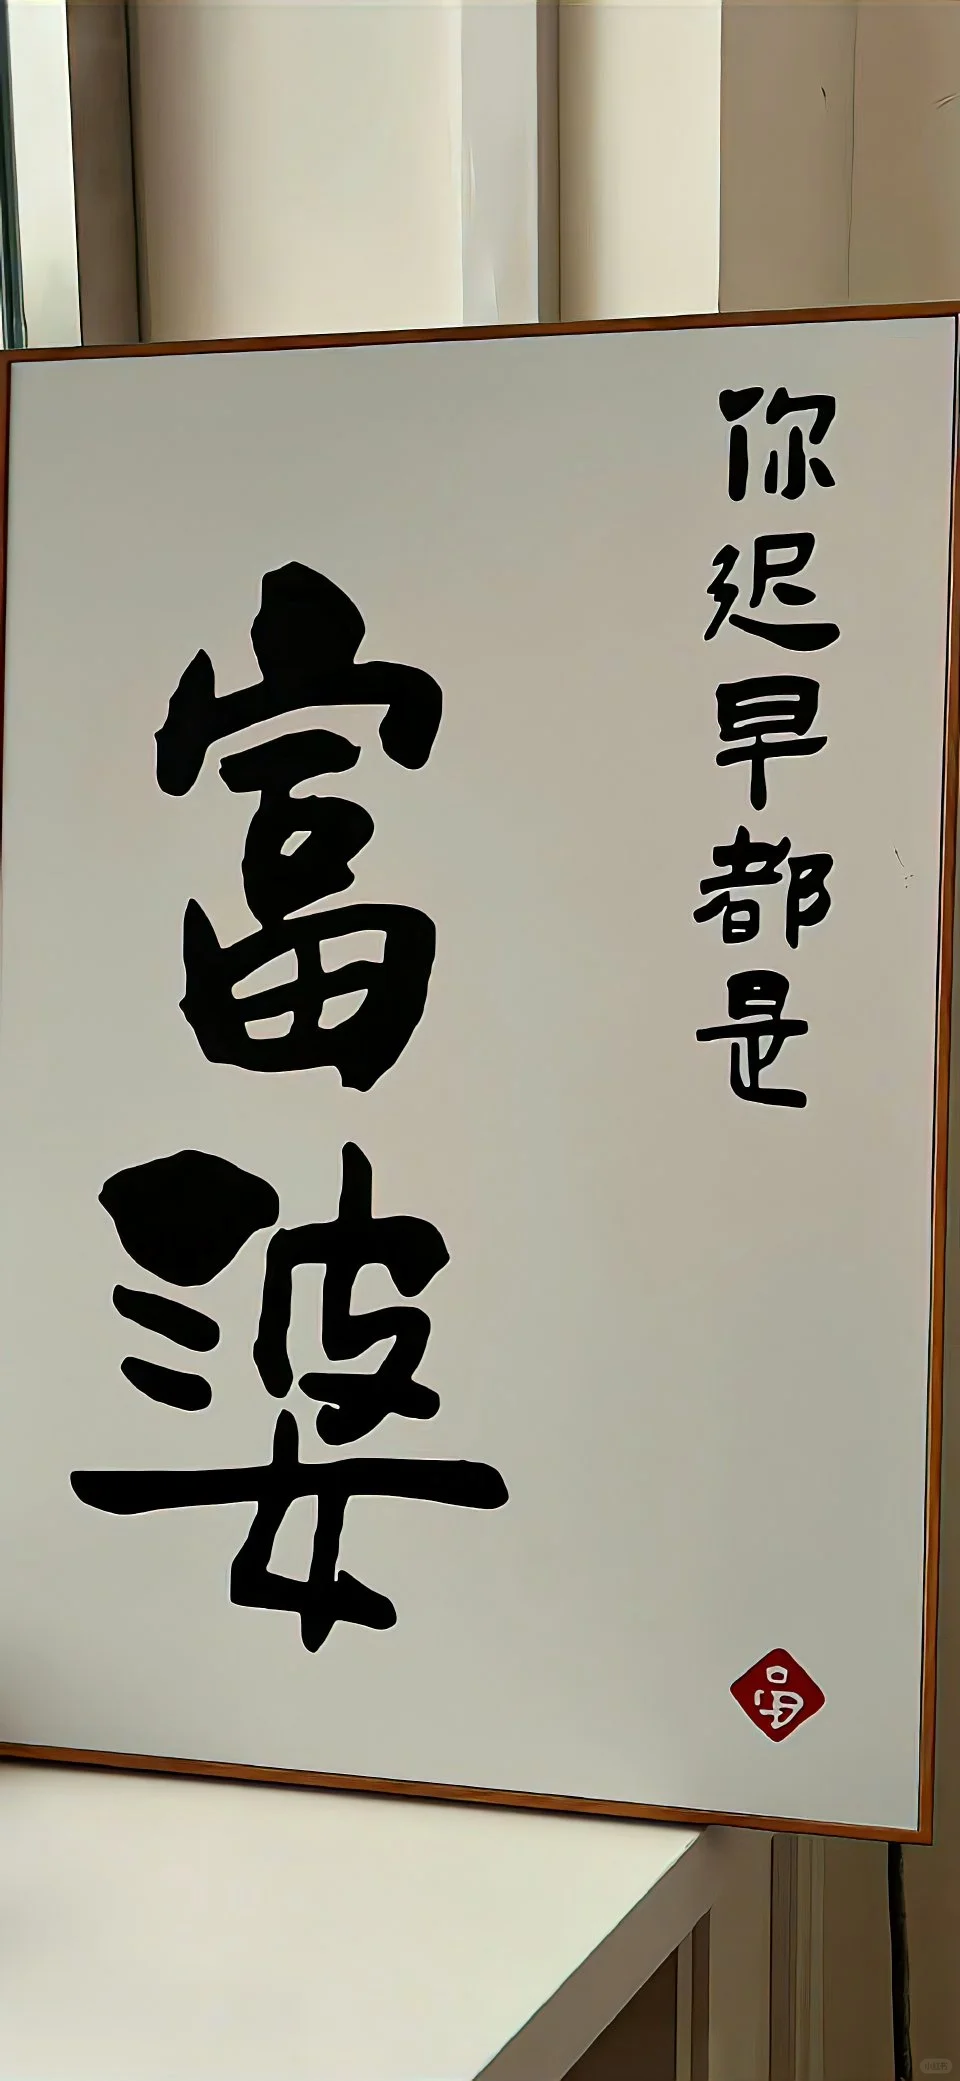 你迟早都是
富婆
富
小红书